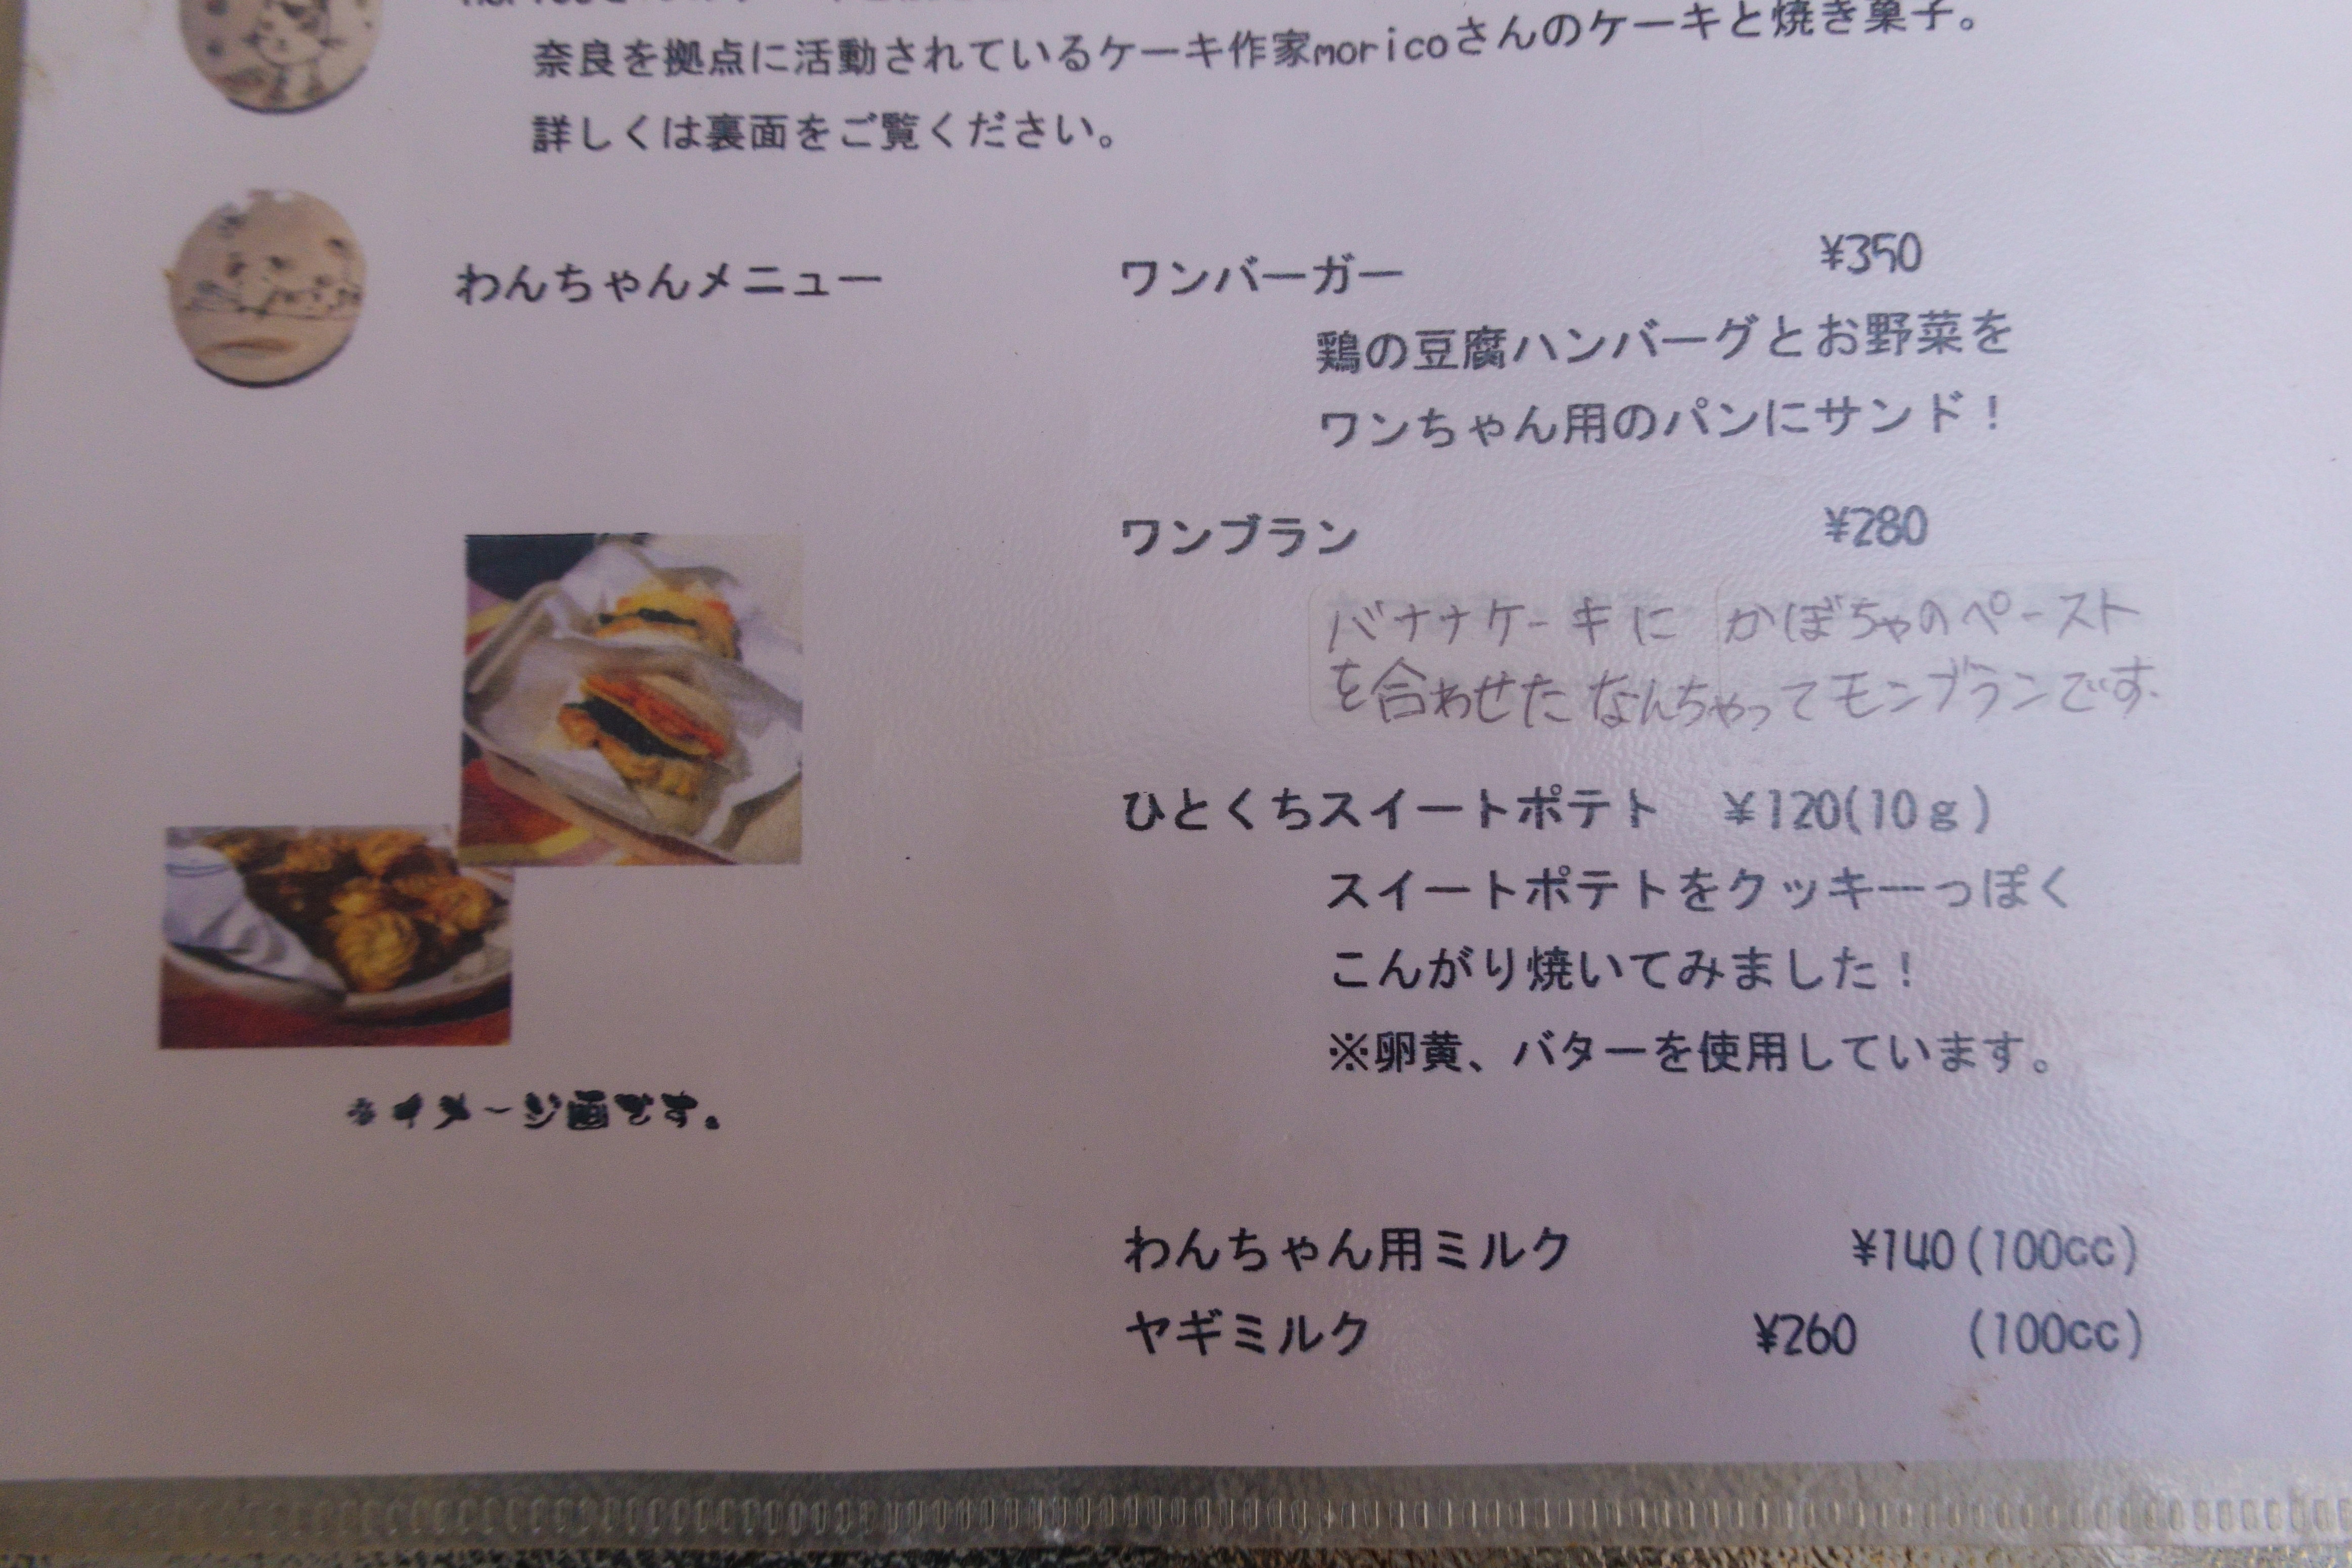 奈良を拠点に活動されているケーキ作家moricoさんのケーキと焼き菓子。
詳しくは裏面をご覧ください。
わんちゃんメニュー
ワンバーガー ¥350
鶏の豆腐ハンバーグとお野菜を
ワンちゃん用のパンにサンド！
ワンブラン ¥280
バナナケーキに かぼちゃのペースト
を合わせた なんちゃってモンブランです.
ひとくちスイートポテト ¥120(10g)
スイートポテトをクッキーっぽく
こんがり焼いてみました！
※卵黄、バターを使用しています。
※イメージ画です。
わんちゃん用ミルク ¥140(100cc)
ヤギミルク ¥260 (100cc)